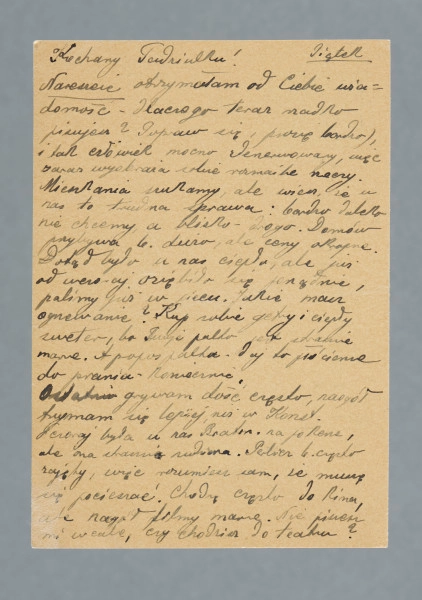 Kochany Tadziulku! Piątek
Nareszcie otrzymałam od Ciebie wia=
domość. Dlaczego teraz rzadko
piszesz? Popraw się, proszę bardzo),
i tak człowiek mocno zdenerwowany, więc
zaraz wyobraża sobie rozmaite rzeczy.
Mieszkania szukamy, ale wiesz, że u
nas to trudna sprawa: bardzo daleko
nie chcemy, a blisko - drogo. Domów
przybywa b. dużo, ale ceny okropne.
Dotąd było u nas ciepło, ale już
od wczoraj oziębiło się porządnie,
palimy już w piecu. Jakie masz
ogrzewanie? Kup sobie gruby i ciepły
sweter, bo Twoje palto jest strasznie
marne. A propos palta - daj to jesienne
do prania - koniecznie!
Ostatnio grywam dość często, naogół
trzymam się lepiej, niż w Konst.
Wczoraj była u nas na pokerze,
ale ona rodzina. b. często
zajęty, więc rozumiesz sam, że muszę
się pocieszać. Chodzę często do kina,
ale naogół filmy marne. Nie piszesz
mi wcale, czy chodzisz do teatru?